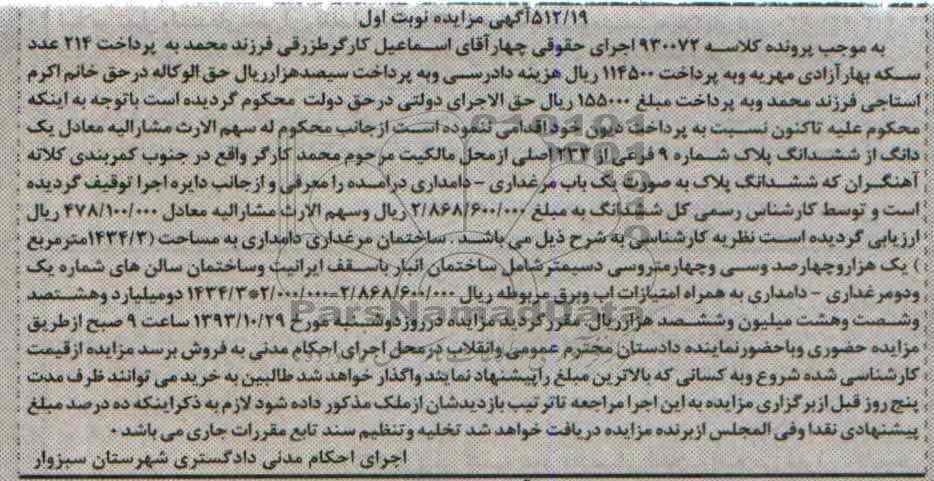 ۵۱۲/۱۹آگهی مزایده نوبت اول
به موجب پرونده کلاسه ۹۳۰۰۷۲ اجرای حقوقی چهار آقای اسماعیل کارگرطزرقی فرزند محمد به پرداخت ۲۱۴ عدد
سکه بهار آزادی مهریه وبه پرداخت ۱۱۴۵۰۰ ریال هزینه دادرسی وبه پرداخت سیصدهزارریال حق الوکاله درحق خانم اکرم
استاجی فرزند محمد وبه پرداخت مبلغ ۱۵۵۰۰۰ ریال حق الاجرای دولتی درحق دولت محکوم گردیده است باتوجه به اینکه
محکوم علیه تاکنون نسبت به پرداخت دیون خود اقدامی ننموده است ازجانب محکوم له سهم الارث مشارالیه معادل یک
دانگ از ششدانگ پلاک شماره ۹ فرعی از ۲۳۲ اصلی ازمحل مالکیت مرحوم محمد کارگر واقع در جنوب کمربندی کلاته
آهنگران که ششدانگ پلاک به صورت یک باب مرغداری - دامداری درامده را معرفی و ازجانب دایره اجرا توقیف گردیده
است و توسط کارشناس رسمی کل ششدانگ به مبلغ ۲/۸۶۸/۶۰۰/۰۰۰ ریال وسهم الارث مشارالیه معادل ۴۷۸/۱۰۰/۰۰۰ ریال
ارزیابی گردیده است نظریه کارشناسی به شرح ذیل می باشد . ساختمان مرغداری دامداری به مساحت (۱۴۳۴/۳مترمربع
) یک هزاروچهارصد وسی وچهارمتروسی دسیمترشامل ساختمان انبار باسقف ایرانیت وساختمان سالن های شماره یک
ودومرغداری - دامداری به همراه امتیازات اب وبرق مربوطه ریال ۲/۸۶۸/۶۰۰/۰۰۰=۲/۰۰۰/۰۰۰*۱۴۳۴/۳ دومیلیارد وهشتصد
وشصت وهشت میلیون وششصد هزارریال. مقررگردید مزایده درروزدوشنبه مورخ ۱۳۹۳/۱۰/۲۹ ساعت ۹ صبح ازطریق
مزایده حضوری وباحضورنماینده دادستان محترم عمومی وانقلاب درمحل اجرای احکام مدنی به فروش برسد مزایده ازقیمت
کارشناسی شده شروع وبه کسانی که بالاترین مبلغ راپیشنهاد نمایند واگذار خواهد شد طالبین به خرید می توانند ظرف مدت
پنج روز قبل ازبرگزاری مزایده به این اجرا مراجعه تاترتیب بازدیدشان ازملک مذکور داده شود لازم به ذکراینکه ده درصد مبلغ
پیشنهادی نقدا وفی المجلس ازبرنده مزایده دریافت خواهد شد تخلیه وتنظیم سند تابع مقررات جاری می باشد .
اجرای احکام مدنی دادگستری شهرستان سبزوار
ParsNamadData